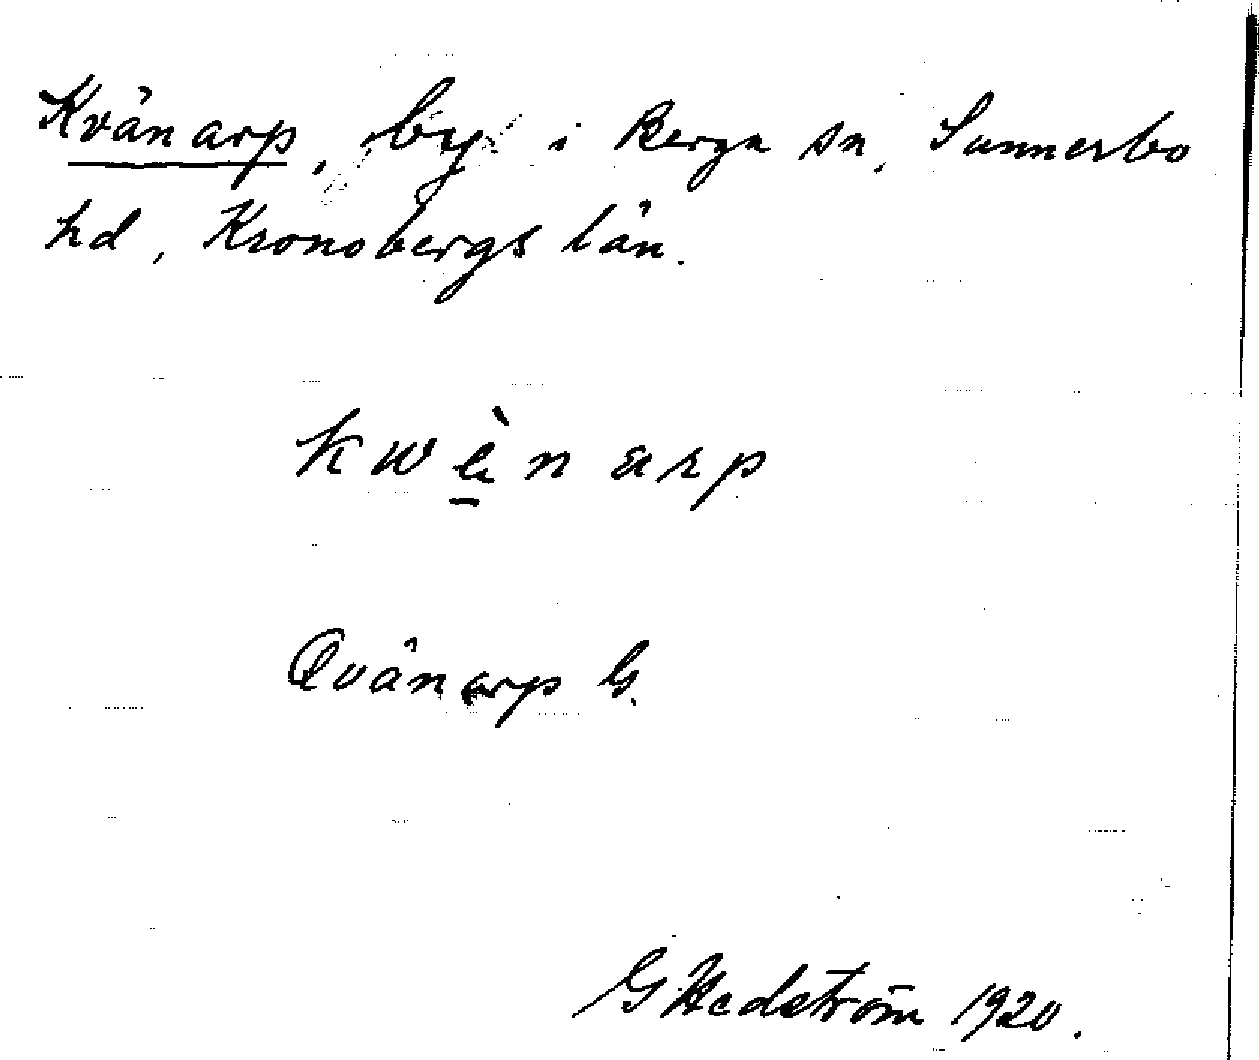 Kvänarp, by i Berga sn, Sunnerbo
hd, Kronobergs län.
Qvänarp G.
G Hedström 1920.